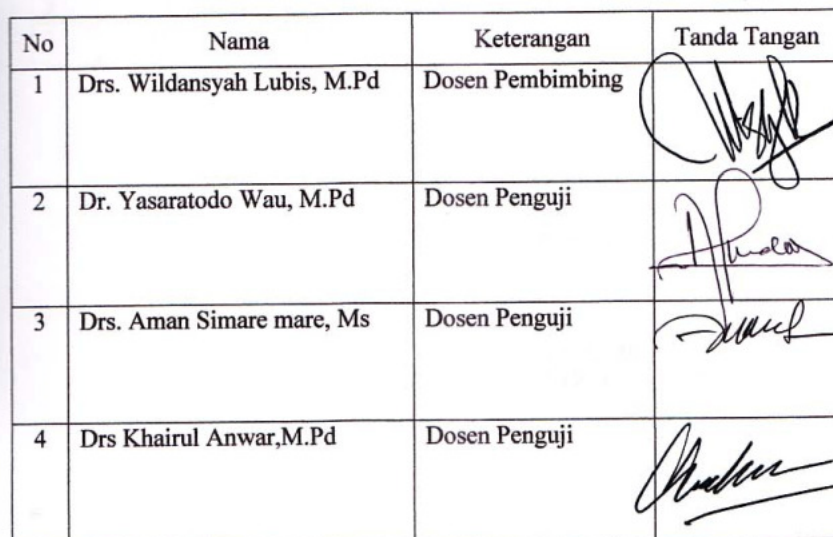 No Nama Keterangan Tanda Tangan
1 Drs. Wildansyah Lubis, M.Pd Dosen Pembimbing
2 Dr. Yasaratodo Wau, M.Pd Dosen Penguji
3 Drs. Aman Simare mare, Ms Dosen Penguji
4 Drs Khairul Anwar,M.Pd Dosen Penguji